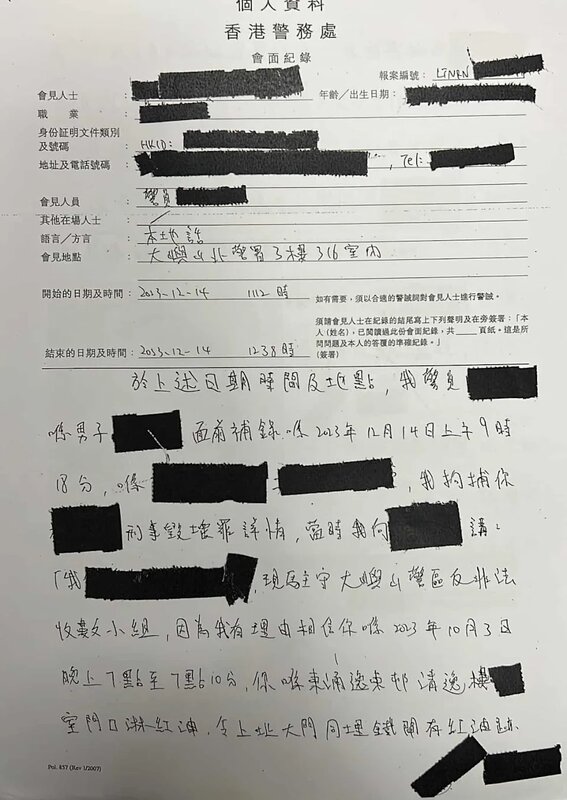 個人資料
香港警務處
會面紀錄
報案編號： LTNRN
會見人士 ：
年齡／出生日期：
職業 ：
身份証明文件類別
及號碼 ： HKID:
地址及電話號碼 ： , Tel:
會見人員 ： 警員
其他在場人士 ：
語言／方言 ： 本地話
會見地點 ： 大嶼山北警署3樓316室內
開始的日期及時間： 2023-12-14 1112 時
如有需要，須以合適的警誡詞對會見人士進行警誡。
須請會見人士在紀錄的結尾寫上下列聲明及在旁簽署：「本
人(姓名)，已閱讀過此份會面紀錄，共＿＿頁紙。這是所
問問題及本人的答覆的準確紀錄。」
結束的日期及時間： 2023-12-14 1238 時
(簽署)
於上述日期時間及地點，我警員
喺男子 面前補錄喺2023年12月14日上午9時
18分，喺 ，我拘捕你
刑事毀壞罪詳情，當時我向 講：
「我 ，現為主守大嶼山警區反非法
收數小組，因為我有理由相信你喺2023年10月3日
晚上7點至7點10分，你喺東涌逸東邨清逸樓
室門口淋紅油，令上址大門同埋鐵閘有紅油跡
Pol. 857 (Rev 1/2007)